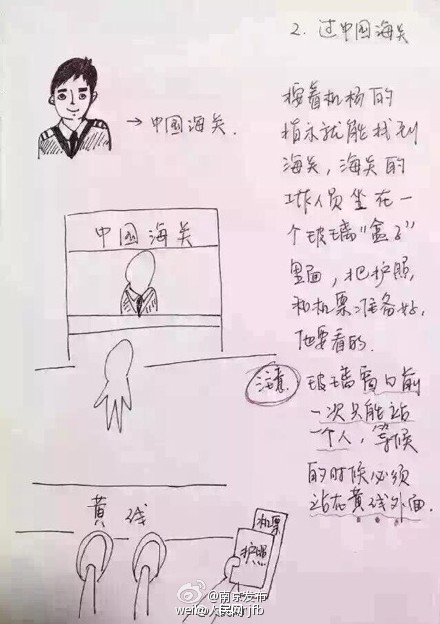 2. 过中国海关
→中国海关.
按着机场的
指示就能找到
海关，海关的
工作人员坐在一
个玻璃“盒子”
里面，把护照，
和机票准备好，
他要看的.
中国海关
注意
玻璃窗口前
一次只能站
一个人，等候
的时候必须
站在黄线外面.
黄线
机票
护照
@南京发布
weibo@人民网jfb